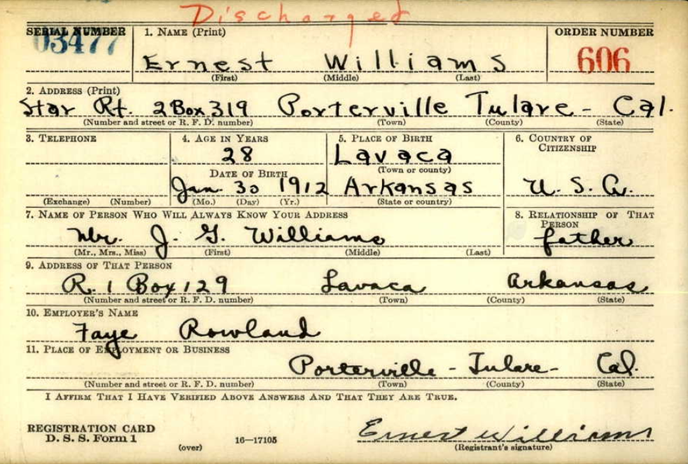 Discharged
SERIAL NUMBER 1. NAME (Print) ORDER NUMBER
03477 Ernest Williams 606
(First) (Middle) (Last)
2. ADDRESS (Print)
Star Rt. 2 Box 319 Porterville Tulare - Cal.
(Number and street or R. F. D. number) (Town) (County) (State)
3. TELEPHONE 4. AGE IN YEARS 5. PLACE OF BIRTH 6. COUNTRY OF CITIZENSHIP
28 Lavaca
DATE OF BIRTH (Town or county)
Jan. 30 1912 Arkansas U. S. A.
(Exchange) (Number) (Mo.) (Day) (Yr.) (State or country)
7. NAME OF PERSON WHO WILL ALWAYS KNOW YOUR ADDRESS 8. RELATIONSHIP OF THAT PERSON
Mr. J. G. Williams father
(Mr., Mrs., Miss) (First) (Middle) (Last)
9. ADDRESS OF THAT PERSON
R. 1 Box 129 Lavaca Arkansas
(Number and street or R. F. D. number) (Town) (County) (State)
10. EMPLOYER'S NAME
Faye Rowland
11. PLACE OF EMPLOYMENT OR BUSINESS
Porterville - Tulare - Cal.
(Number and street or R. F. D. number) (Town) (County) (State)
I AFFIRM THAT I HAVE VERIFIED ABOVE ANSWERS AND THAT THEY ARE TRUE.
REGISTRATION CARD
D. S. S. Form 1 (over) 16-17105 Ernest Williams
(Registrant's signature)